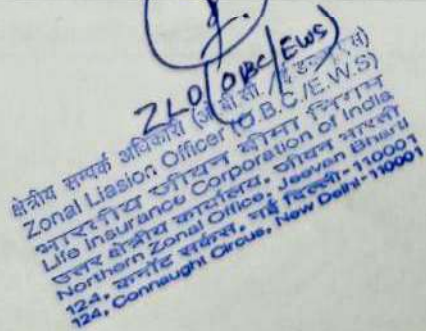 ZLO (OBC/EWS)
क्षेत्रीय सम्पर्क अधिकारी (ओ.बी.सी./ई.डब्ल्यू.एस)
Zonal Liasion Officer (O.B.C./E.W.S)
भारतीय जीवन बीमा निगम
Life Insurance Corporation of India
उत्तर क्षेत्रीय कार्यालय, जीवन भारती
Northern Zonal Office, Jeevan Bharti
124, कनॉट सर्कस, नई दिल्ली-110001
124, Connaught Circus, New Delhi-110001